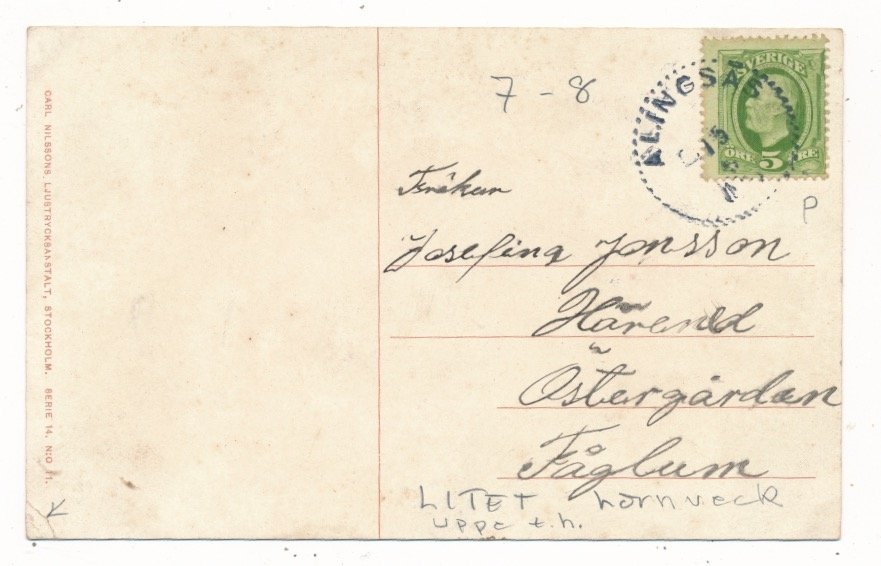 CARL NILSSONS LJUSTRYCKSANSTALT, STOCKHOLM. SERIE 14. N:O 11.
7 - 8
ALINGSÅS
15
SVERIGE
ÖRE 5 ÖRE
P
Fröken
Josefina Jonsson
Härened
Östergården
Fåglum
LITET hörnveck
uppe t.h.